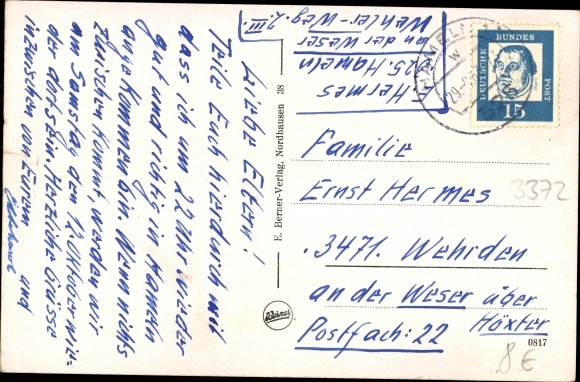 Liebe Eltern!
Teile Euch hierdurch mit
dass ich um 22 Uhr wieder
gut und richtig in Hameln
angekommen bin. Wenn nichts
zwischen kommt, werden wir
am Samstag den 1. Oktober wie-
der dort sein. Herzliche Grüsse
inzwischen von Eurem
und
E. Hermes
325. Hameln
an der Weser
Wehler-Weg. 2, III.
HAMELN
29.-9.
DEUTSCHE
BUNDES
POST
15
Familie
Ernst Hermes
3372
3471. Wehrden
an der Weser über
Höxter
Postfach: 22
E. Berner-Verlag, Nordhausen 38
Berner
0817
8€